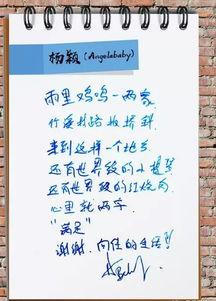 杨颖 (Angelababy)
雨里鸡鸣一两家
竹溪村路板桥斜
来到这样一个地方
还有世界级的小提琴
还有世界级的红烧肉
心里就两字
"满足"
谢谢.向往的生活!!